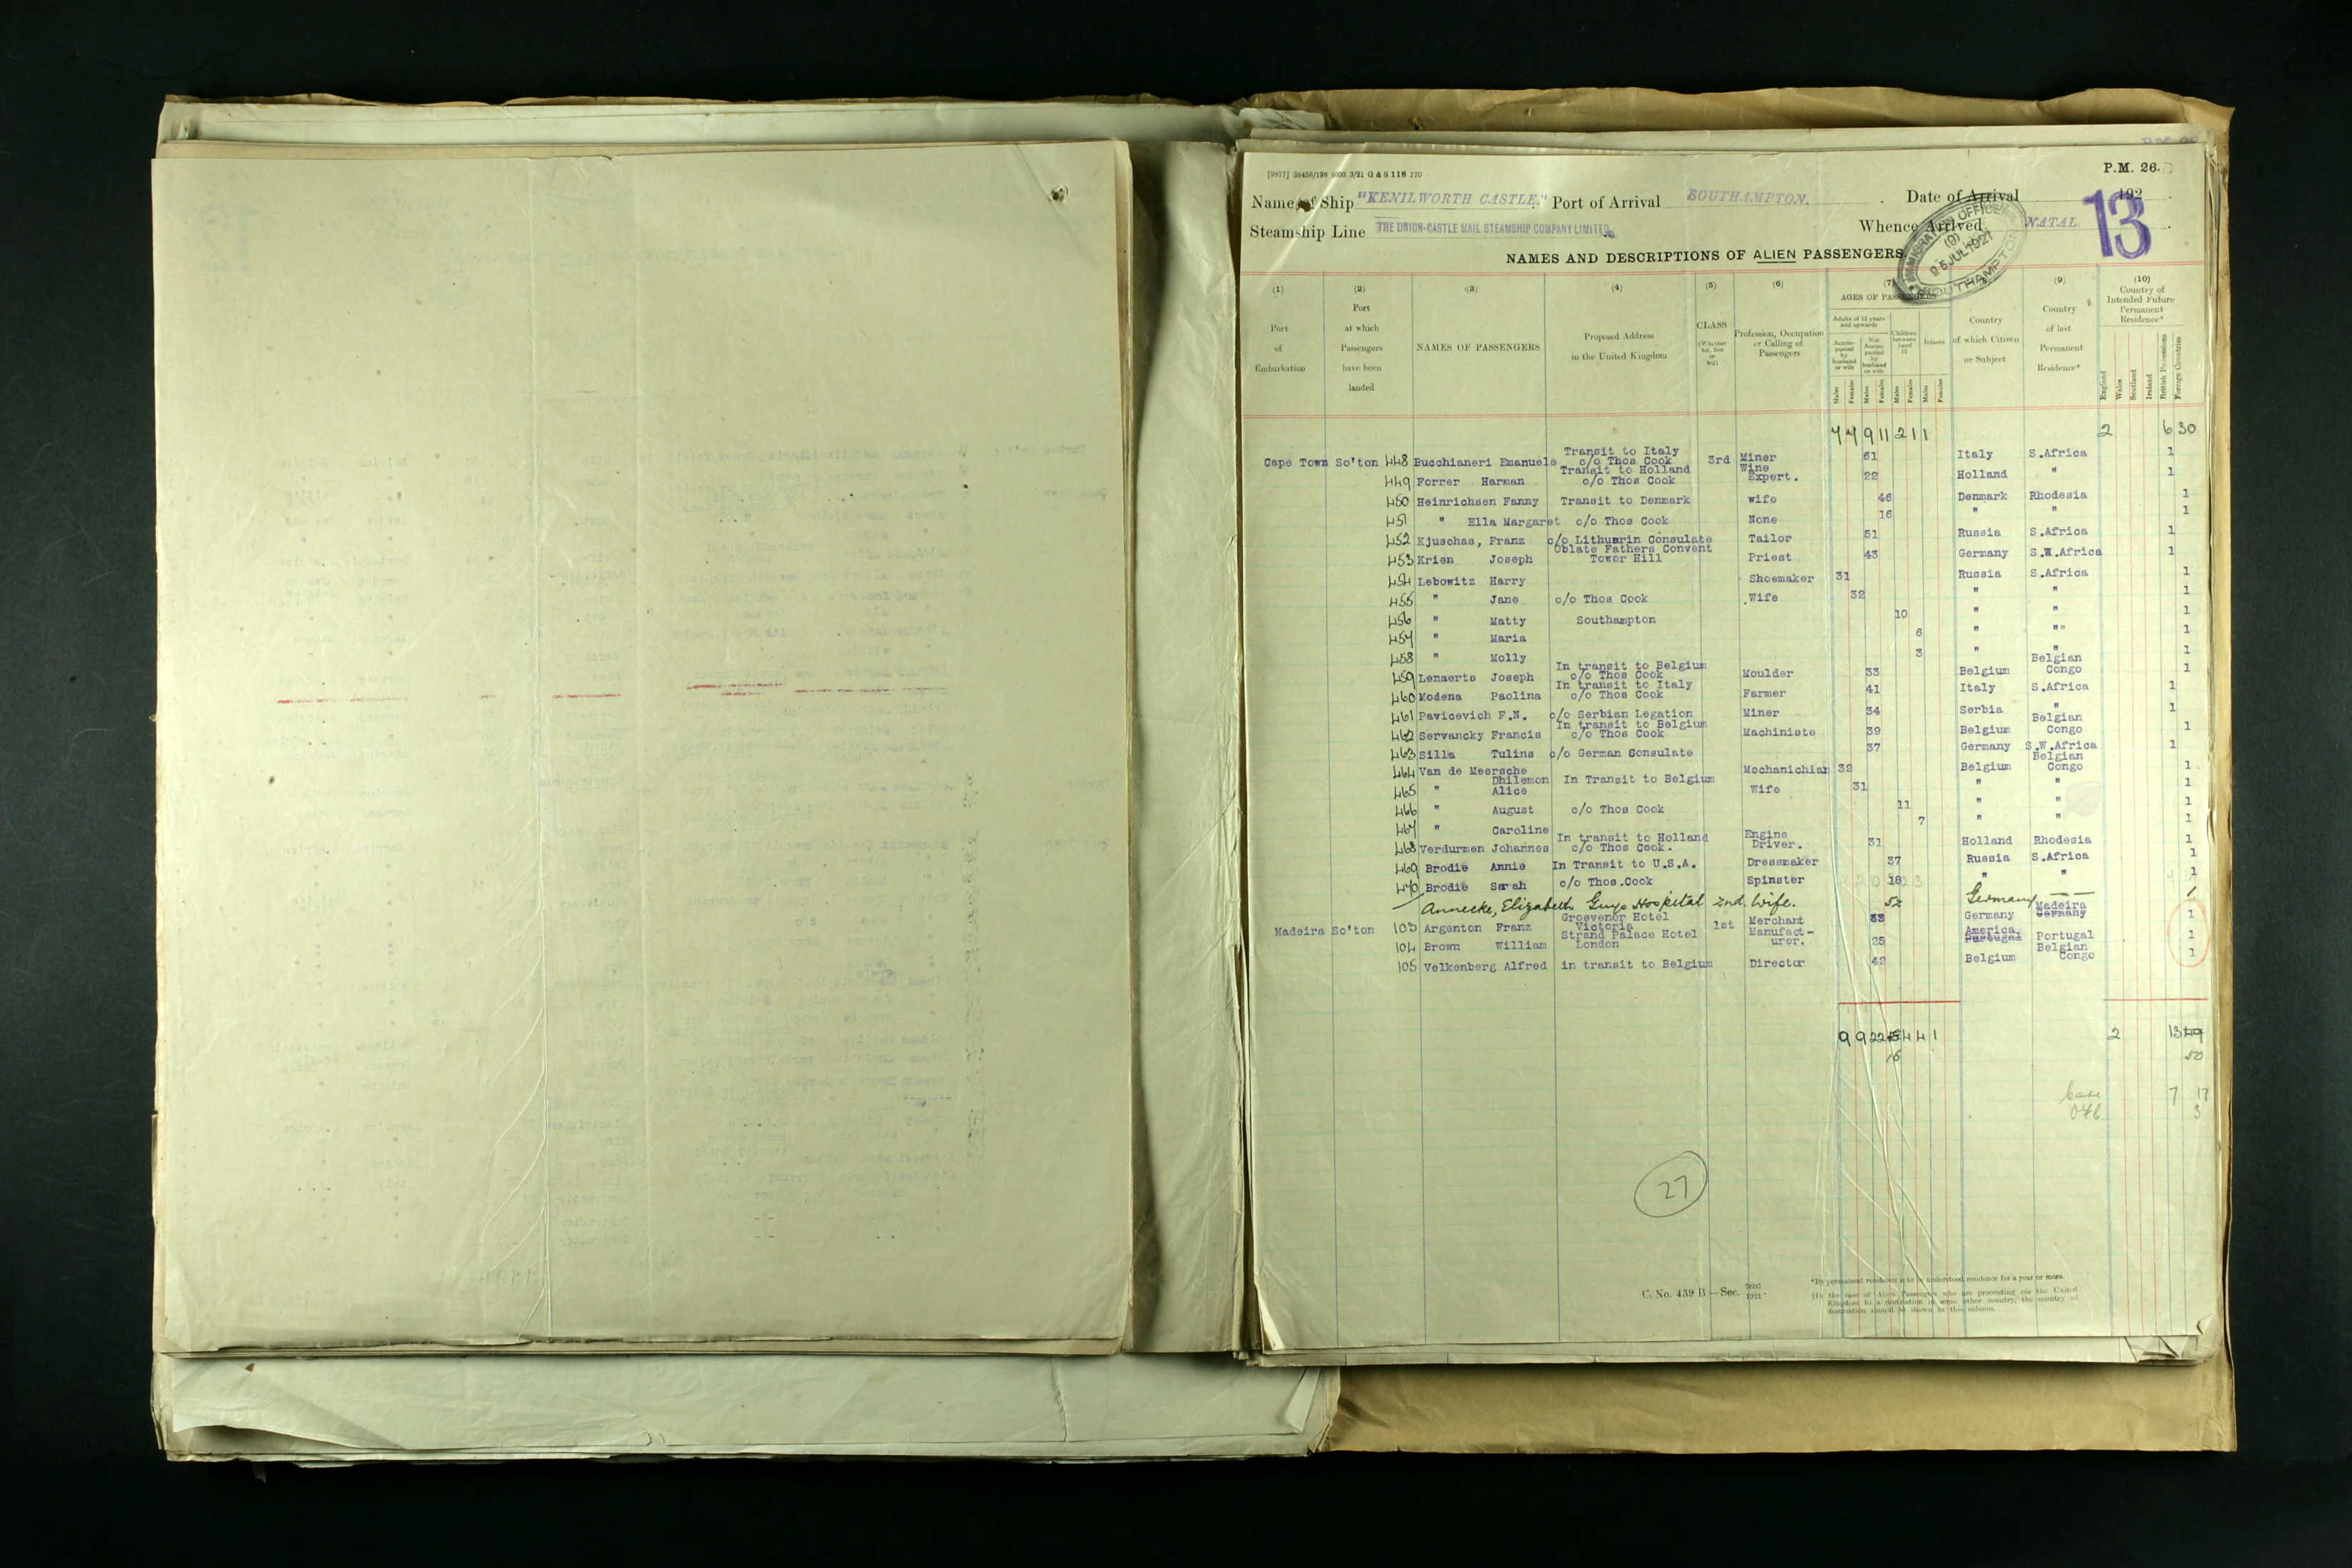 P.M. 26.
Name of Ship "KENILWORTH CASTLE." Port of Arrival SOUTHAMPTON. Date of Arrival 192
Steamship Line THE UNION-CASTLE MAIL STEAMSHIP COMPANY LIMITED. Whence Arrived NATAL.
13
IMMIGRATION OFFICER
(9)
25 JUL 1921
SOUTHAMPTON
NAMES AND DESCRIPTIONS OF ALIEN PASSENGERS
(1) Port of Embarkation
(2) Port at which Passengers have been landed
(3) NAMES OF PASSENGERS
(4) Proposed Address in the United Kingdom
(5) CLASS (Whether 1st, 2nd or 3rd)
(6) Profession, Occupation or Calling of Passengers
(7) AGES OF PASSENGERS
Adults of 12 years and upwards
Accompanied by husband or wife
Not Accompanied by husband or wife
Children between 1 and 12
Infants
Males Females Males Females Males Females Males Females
Country of which Citizen or Subject
(9) Country of last Permanent Residence*
(10) Country of Intended Future Permanent Residence*
England Wales Scotland Ireland British Possessions Foreign Countries
7 7 9 11 2 1 1 2 6 30
Cape Town So'ton 448 Bucchianeri Emanuele Transit to Italy c/o Thos Cook 3rd Miner 61 Italy S.Africa 1
449 Forrer Harman Transit to Holland c/o Thos Cook Wine Expert. 22 Holland " 1
450 Heinrichsen Fanny Transit to Denmark wife 46 Denmark Rhodesia 1
451 " Ella Margaret c/o Thos Cook None 16 " " 1
452 Kjuschas, Franz c/o Lithuarin Consulate Tailor 51 Russia S.Africa 1
453 Krien Joseph Oblate Fathers Convent Tower Hill Priest 43 Germany S.W.Africa 1
454 Lebowitz Harry Shoemaker 31 Russia S.Africa 1
455 " Jane c/o Thos Cook Wife 32 " " 1
456 " Matty Southampton 10 " " 1
457 " Maria 6 " "" 1
458 " Molly 3 " " 1
459 Lenaerts Joseph In transit to Belgium c/o Thos Cook Moulder 33 Belgium Belgian Congo 1
460 Modena Paolina In transit to Italy c/o Thos Cook Farmer 41 Italy S.Africa 1
461 Pavicevich F.N. c/o Serbian Legation Miner 34 Serbia " 1
462 Servancky Francis In transit to Belgium c/o Thos Cook Machiniste 39 Belgium Belgian Congo 1
463 Silla Tulins c/o German Consulate 37 Germany S.W.Africa 1
464 Van de Meersche Dhilemon In Transit to Belgium Mechanichian 32 Belgium Belgian Congo 1
465 " Alice Wife 31 " " 1
466 " August c/o Thos Cook 11 " " 1
467 " Caroline 7 " " 1
468 Verdurmen Johannes In transit to Holland c/o Thos Cook. Engine Driver. 31 Holland Rhodesia 1
469 Brodie Annie In Transit to U.S.A. Dressmaker 37 Russia S.Africa 1
470 Brodie Sarah c/o Thos.Cook Spinster 18 " " 1
Annecke, Elizabeth Guys Hospital 2nd. Wife. 52 Germany — — 1
Madeira So'ton 103 Argenton Franz Grosvenor Hotel Victoria 1st Merchant 33 Germany Madeira Germany 1
104 Brown William Strand Palace Hotel London Manufacturer. 25 America. Portugal Portugal 1
105 Velkenberg Alfred in transit to Belgium Director 42 Belgium Belgian Congo 1
9 9 22 15 4 4 1 2 13 49
16 50
7 17
3
27
C. No. 439 B.—Sec.
*By permanent residence is to be understood residence for a year or more.
In the case of Alien Passengers who are proceeding via the United
Kingdom to a destination in some other country, the country of
destination should be shown in this column.